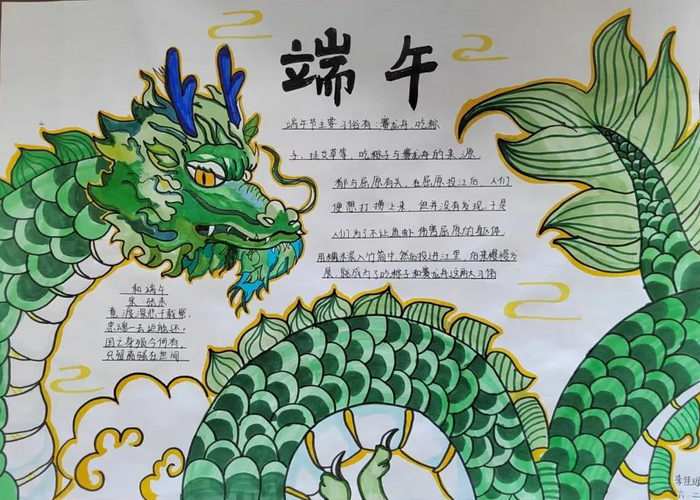 端午
端午节主要习俗有：赛龙舟、吃粽
子、挂艾草等，吃粽子与赛龙舟的来源
都与屈原有关，在屈原投江后，人们
便想打捞上来，但并没有发现，于是
人们为了不让鱼虾伤害屈原的躯体
用糯米装入竹筒中然后投进江里，后来慢慢发
展，就成为了吃粽子和赛龙舟这两大习俗
和端午
宋 张耒
竞渡深悲千载冤，
忠魂一去讵能还，
国亡身殒今何有，
只留离骚在世间